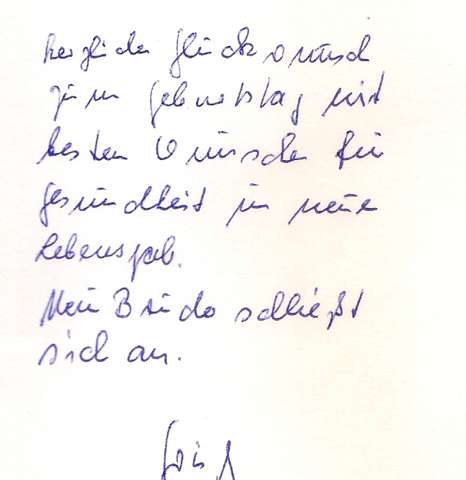 herzlichen Glückwunsch
zum Geburtstag mit
besten Wünschen für
Gesundheit im neuen
Lebensjah.
Mein Bruder schließt
sich an.